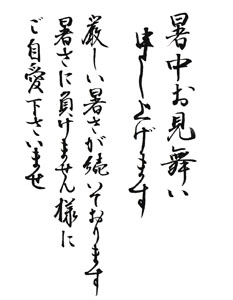 暑中お見舞い
申し上げます
厳しい暑さが続いております
暑さに負けません様に
ご自愛下さいませ